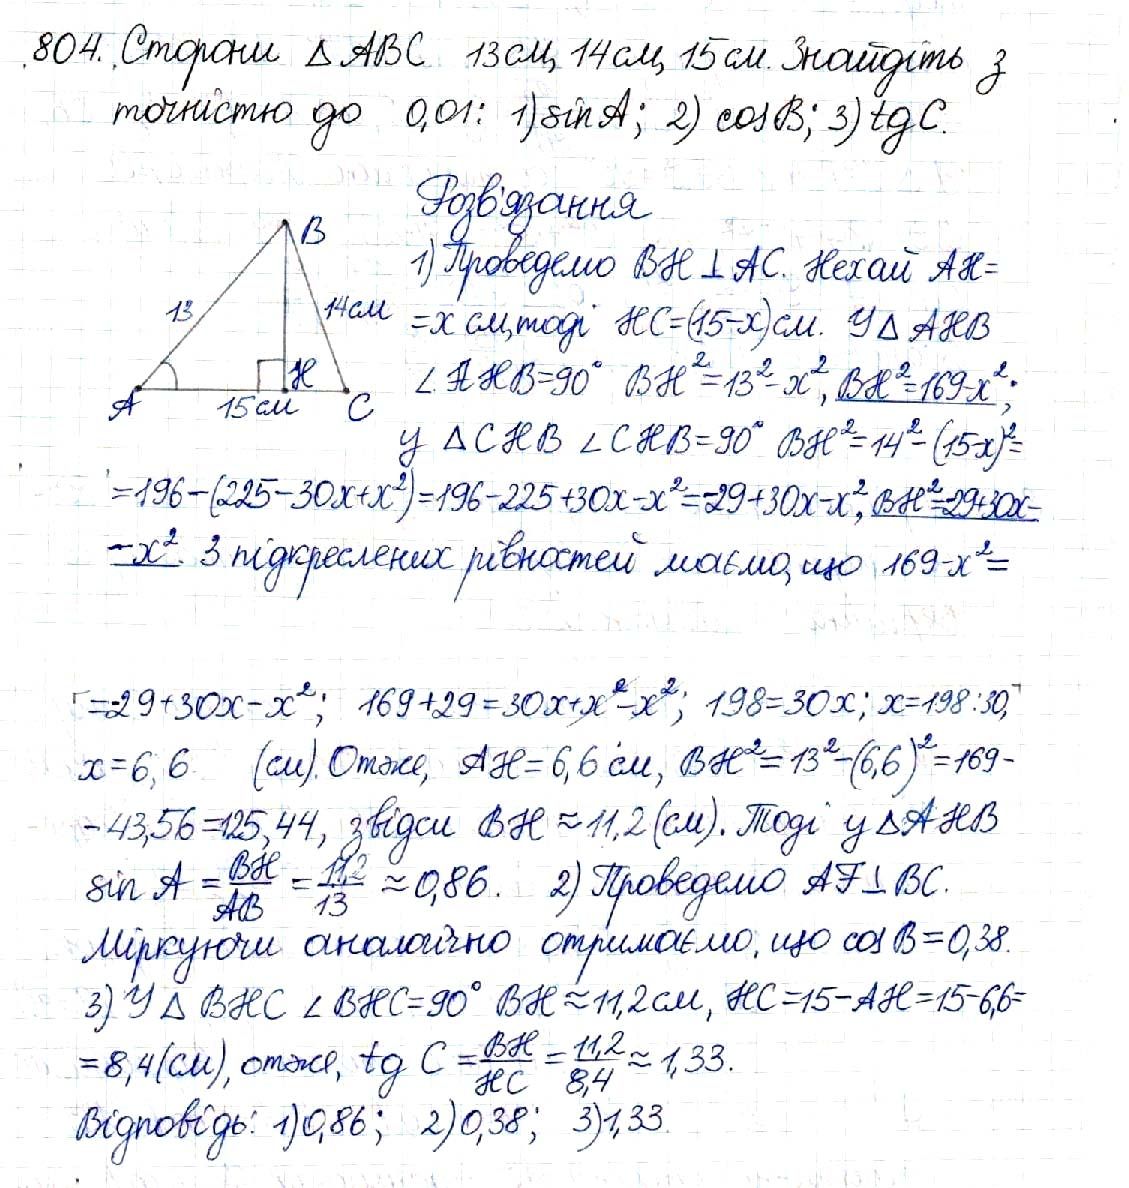 804. Сторони △ ABC 13см, 14см, 15см. Знайдіть з
точністю до 0,01: 1) sin A; 2) cos B; 3) tg C.
Розв'язання
B
13
14см
H
A
15см
C
1) Проведемо BH ⊥ AC. Нехай AH=
=x см, тоді HC=(15-x)см. У △ AHB
∠ AHB=90° BH²=13²-x², BH²=169-x²;
у △ CHB ∠ CHB=90° BH²=14²-(15-x)²=
=196-(225-30x+x²)=196-225+30x-x²=-29+30x-x², BH²=-29+30x-
-x². З підкреслених рівностей маємо, що 169-x²=
=-29+30x-x²; 169+29=30x+x²-x²; 198=30x; x=198:30,
x=6,6 (см). Отже, AH=6,6 см, BH²=13²-(6,6)²=169-
-43,56=125,44, звідси BH≈11,2(см). Тоді у △ AHB
sin A = BH/AB = 11,2/13 ≈0,86. 2) Проведемо AF⊥BC.
Міркуючи аналогічно отримаємо, що cos B=0,38.
3) У △ BHC ∠ BHC=90° BH≈11,2см, HC=15-AH=15-6,6=
=8,4(см), отже, tg C = BH/HC = 11,2/8,4 ≈1,33.
Відповідь: 1)0,86; 2)0,38; 3)1,33.